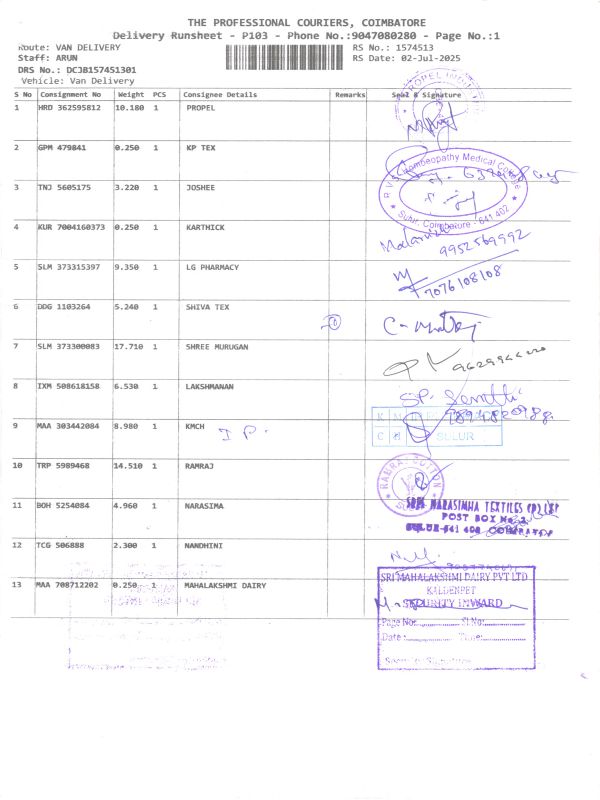 THE PROFESSIONAL COURIERS, COIMBATORE
Delivery Runsheet - P103 - Phone No.:9047080280 - Page No.:1
Route: VAN DELIVERY
RS No.: 1574513
Staff: ARUN
RS Date: 02-Jul-2025
DRS No.: DCJB157451301
Vehicle: Van Delivery
S No Consignment No Weight PCS Consignee Details Remarks Seal & Signature
1 HRD 362595812 10.180 1 PROPEL
2 GPM 479841 0.250 1 KP TEX
R V S Homoeopathy Medical College
3 TNJ 5605175 3.220 1 JOSHEE
Sulur, Coimbatore - 641 402
4 KUR 7004160373 0.250 1 KARTHICK
9952569992
5 SLM 373315397 9.350 1 LG PHARMACY
7076108108
6 DDG 1103264 5.240 1 SHIVA TEX
7 SLM 373300083 17.710 1 SHREE MURUGAN
8 IXM 508618158 6.530 1 LAKSHMANAN
SP.
9 MAA 303442084 8.980 1 KMCH
I P.
SULUR
10 TRP 5989468 14.510 1 RAMRAJ
RAMRAJ COTTON
11 BOH 5254084 4.960 1 NARASIMA
SREE NARASIMHA TEXTILES (P) LTD
POST BOX No. 2
SULUR-641 402 COIMBATORE
12 TCG 506888 2.300 1 NANDHINI
13 MAA 708712202 0.250 1 MAHALAKSHMI DAIRY
SRI MAHALAKSHMI DAIRY PVT LTD
KALLENPET
SECURITY INWARD
Page No:.......... Sl No:..........
Date :.......... Time:..........
Security Signature